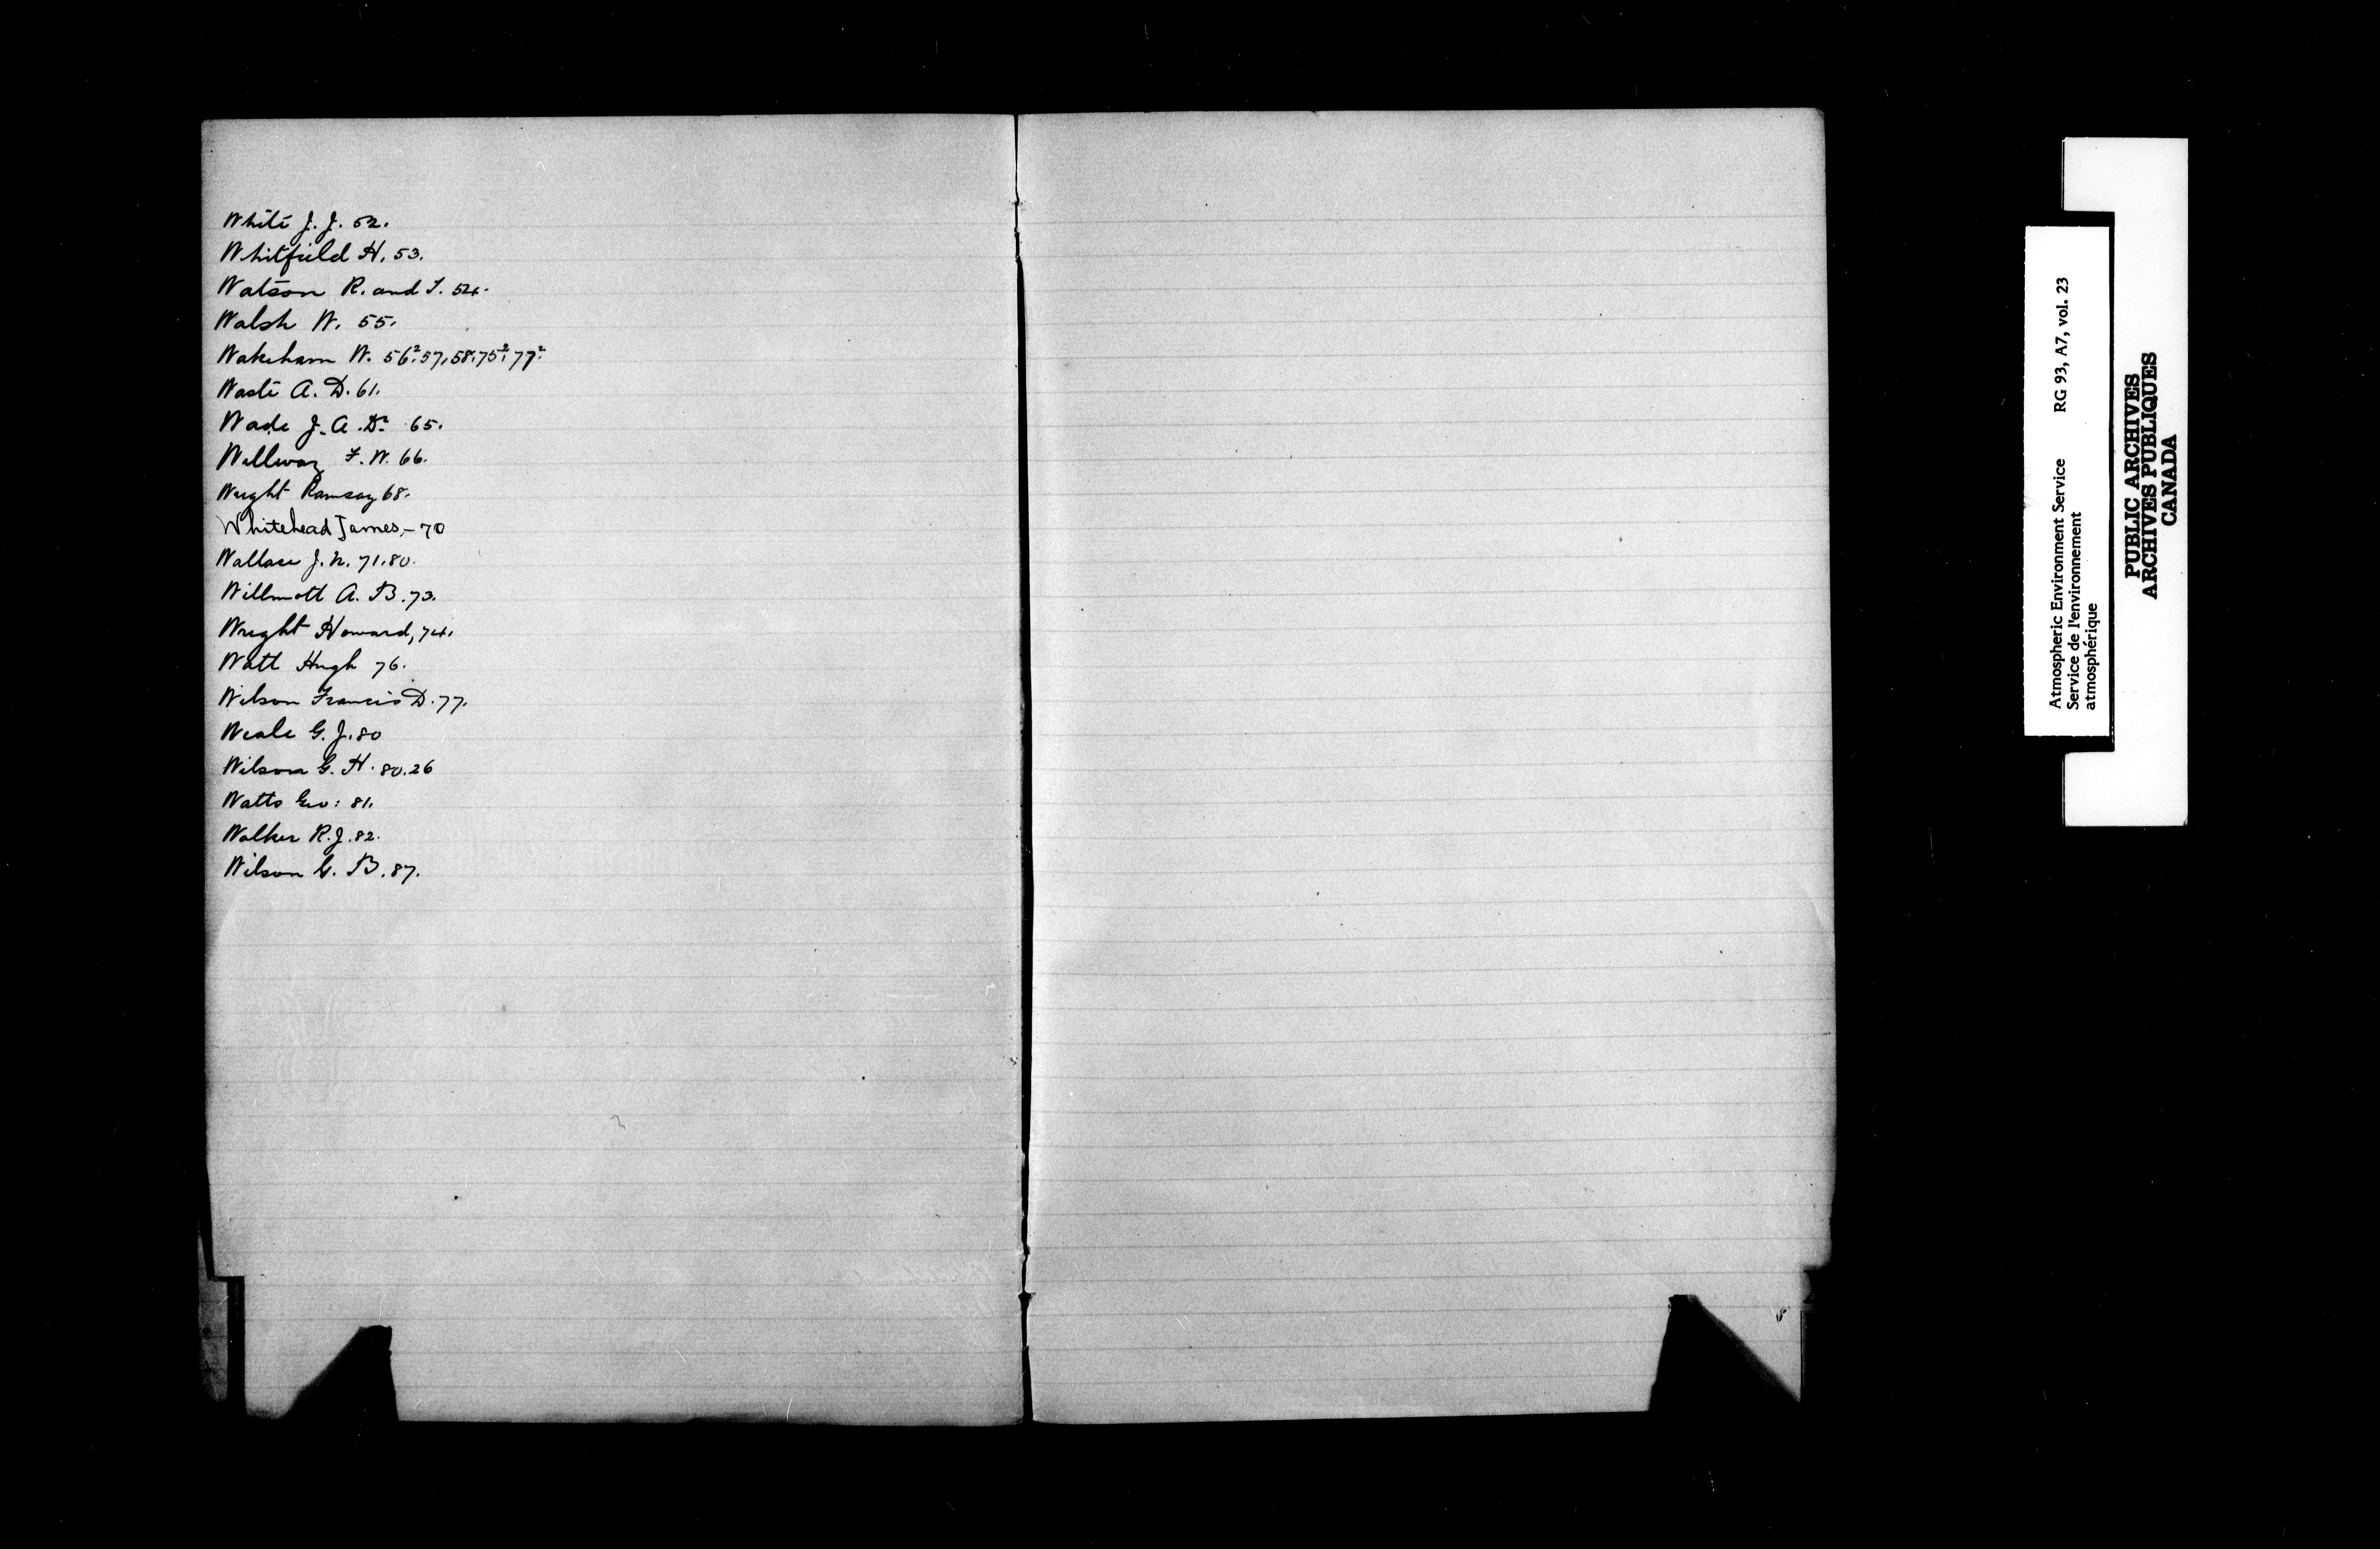 White J. J. 52.
Whitfield H. 53.
Watson R. and T. 54.
Walsh W. 55.
Wakeham W. 56² 57, 58, 75² 77²
Waste A. D. 61.
Wade J. A. Dr 65.
Wellway F. W. 66.
Wright Ramsay 68.
Whitehead James, – 70
Wallace J. N. 71. 80.
Willmott A. B. 73.
Wright Howard, 74.
Watt Hugh 76.
Wilson Francis D. 77.
Weale G. J. 80
Wilson G. H. 80. 26
Watts Geo: 81.
Walker R. J. 82.
Wilson G. B. 87.
Atmospheric Environment Service RG 93, A7, vol. 23
Service de l'environnement
atmosphérique
PUBLIC ARCHIVES
ARCHIVES PUBLIQUES
CANADA